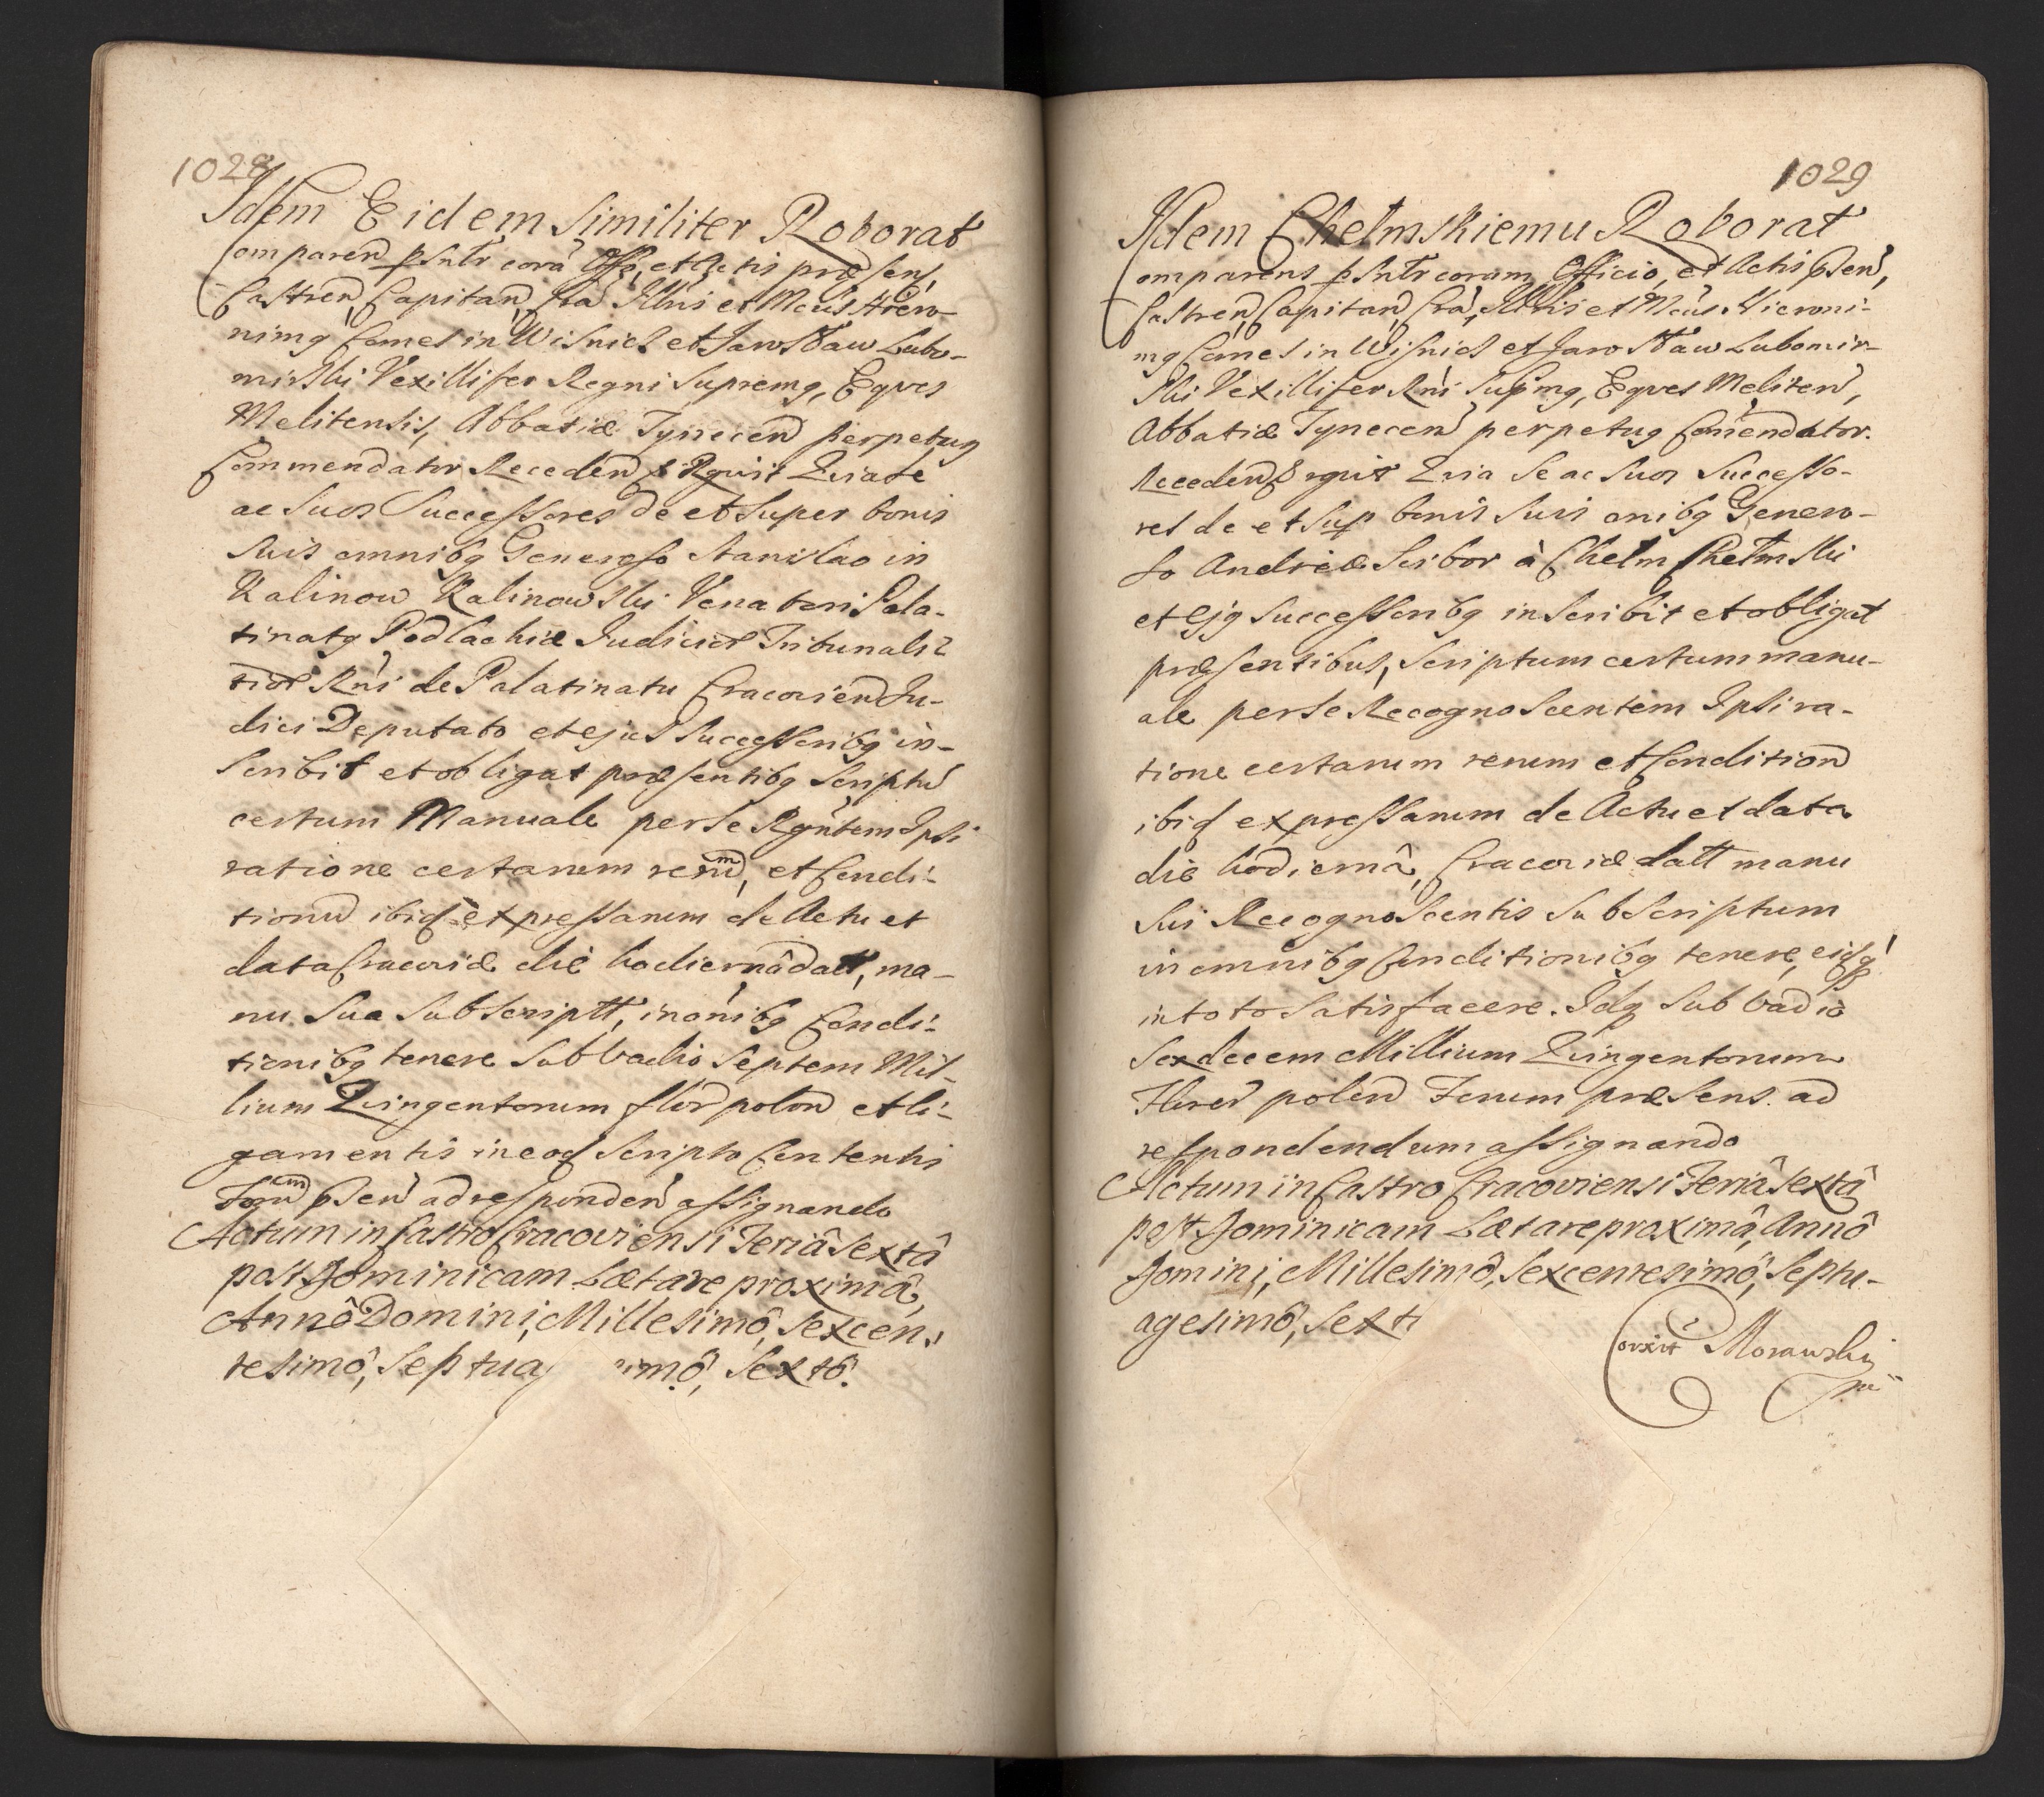 1028
Idem Eidem Similiter Roborat
Comparen psntr corã Offo, et Actis præsen,
Castren, Capitan, Cra Illris et Mcus Hiero-
nimg Comes in Wisnicz et Jarosław Lubo-
mirski Vexillifer Regni Supremg, Eqves
Melitensis, Abbatiæ Tynecen perpetug
Commendator Receden Rgnit Qria se
ac Suos Successores de et super bonis
suis omnibg Generoso Stanislao in
Kalinow Kalinowski Venatori Pala-
tinatg Podlachiæ Judicior Tribunali-
tior Rni de Palatinatu Cracovien Ju-
dici Deputato et ejus Successoribg in-
scribit et obligat præsentibg Scriptu
certum Manuale per se Rgntem Ipsi
ratione certarum rerum, et Condi-
tionu ibid expressarum de Actu et
data Cracoviæ die hodiernâ datt, ma-
nu sua subscriptt, in onibg Condi-
tionibg tenere sub vadio Septem Mil-
lium Qvingentorum flor polon et li-
gamentis in eod Scripto Contentis
Forum psen ad responden assignando
Actum in Castro Cracoviensi Feriâ Sextâ
post Dominicam Lætare proximâ,
Annô Domini, Millesimô, Sexcen-
tesimô, Septuag imô, Sextô.
1029
Idem Chełmskiemu Roborat
Comparens psntr coram Officio, et Actis psen,
Castren, Capitan, Cra, Illris et Mcus Hieroni-
mg Comes in Wisnicz et Jarosław Lubomir-
ski Vexillifer Rni Supmg, Eqves Meliten,
Abbatiæ Tynecen perpetug Comendator.
Receden rgnit Qria se ac suos Successo-
res de et sup bonis suis onibg Genero-
so Andreæ Scibor à Chełm Chełmski
et ejg Successoribg inscribit et obligat
præsentibus, Scriptum certum manu-
ale per se Recognoscentem Ipsi ra-
tione certarum rerum et Condition
ibid expressarum de Actu et data
die hodiernâ, Cracoviæ datt manu
sui Recognoscentis Subscriptum
in omnibg Conditionibg tenere, eisq
in toto satisfacere. Idq sub vadio
Sexdecem Millium Qvingentorum
Floren polon Forum præsens ad
respondendum assignando
Actum in Castro Cracoviensi Feriâ Sextâ
post Dominicam Lætare proximâ, Annô
Domini, Millesimô, Sexcentesimô, Septu-
agesimô, Sext
Corxit Morawski